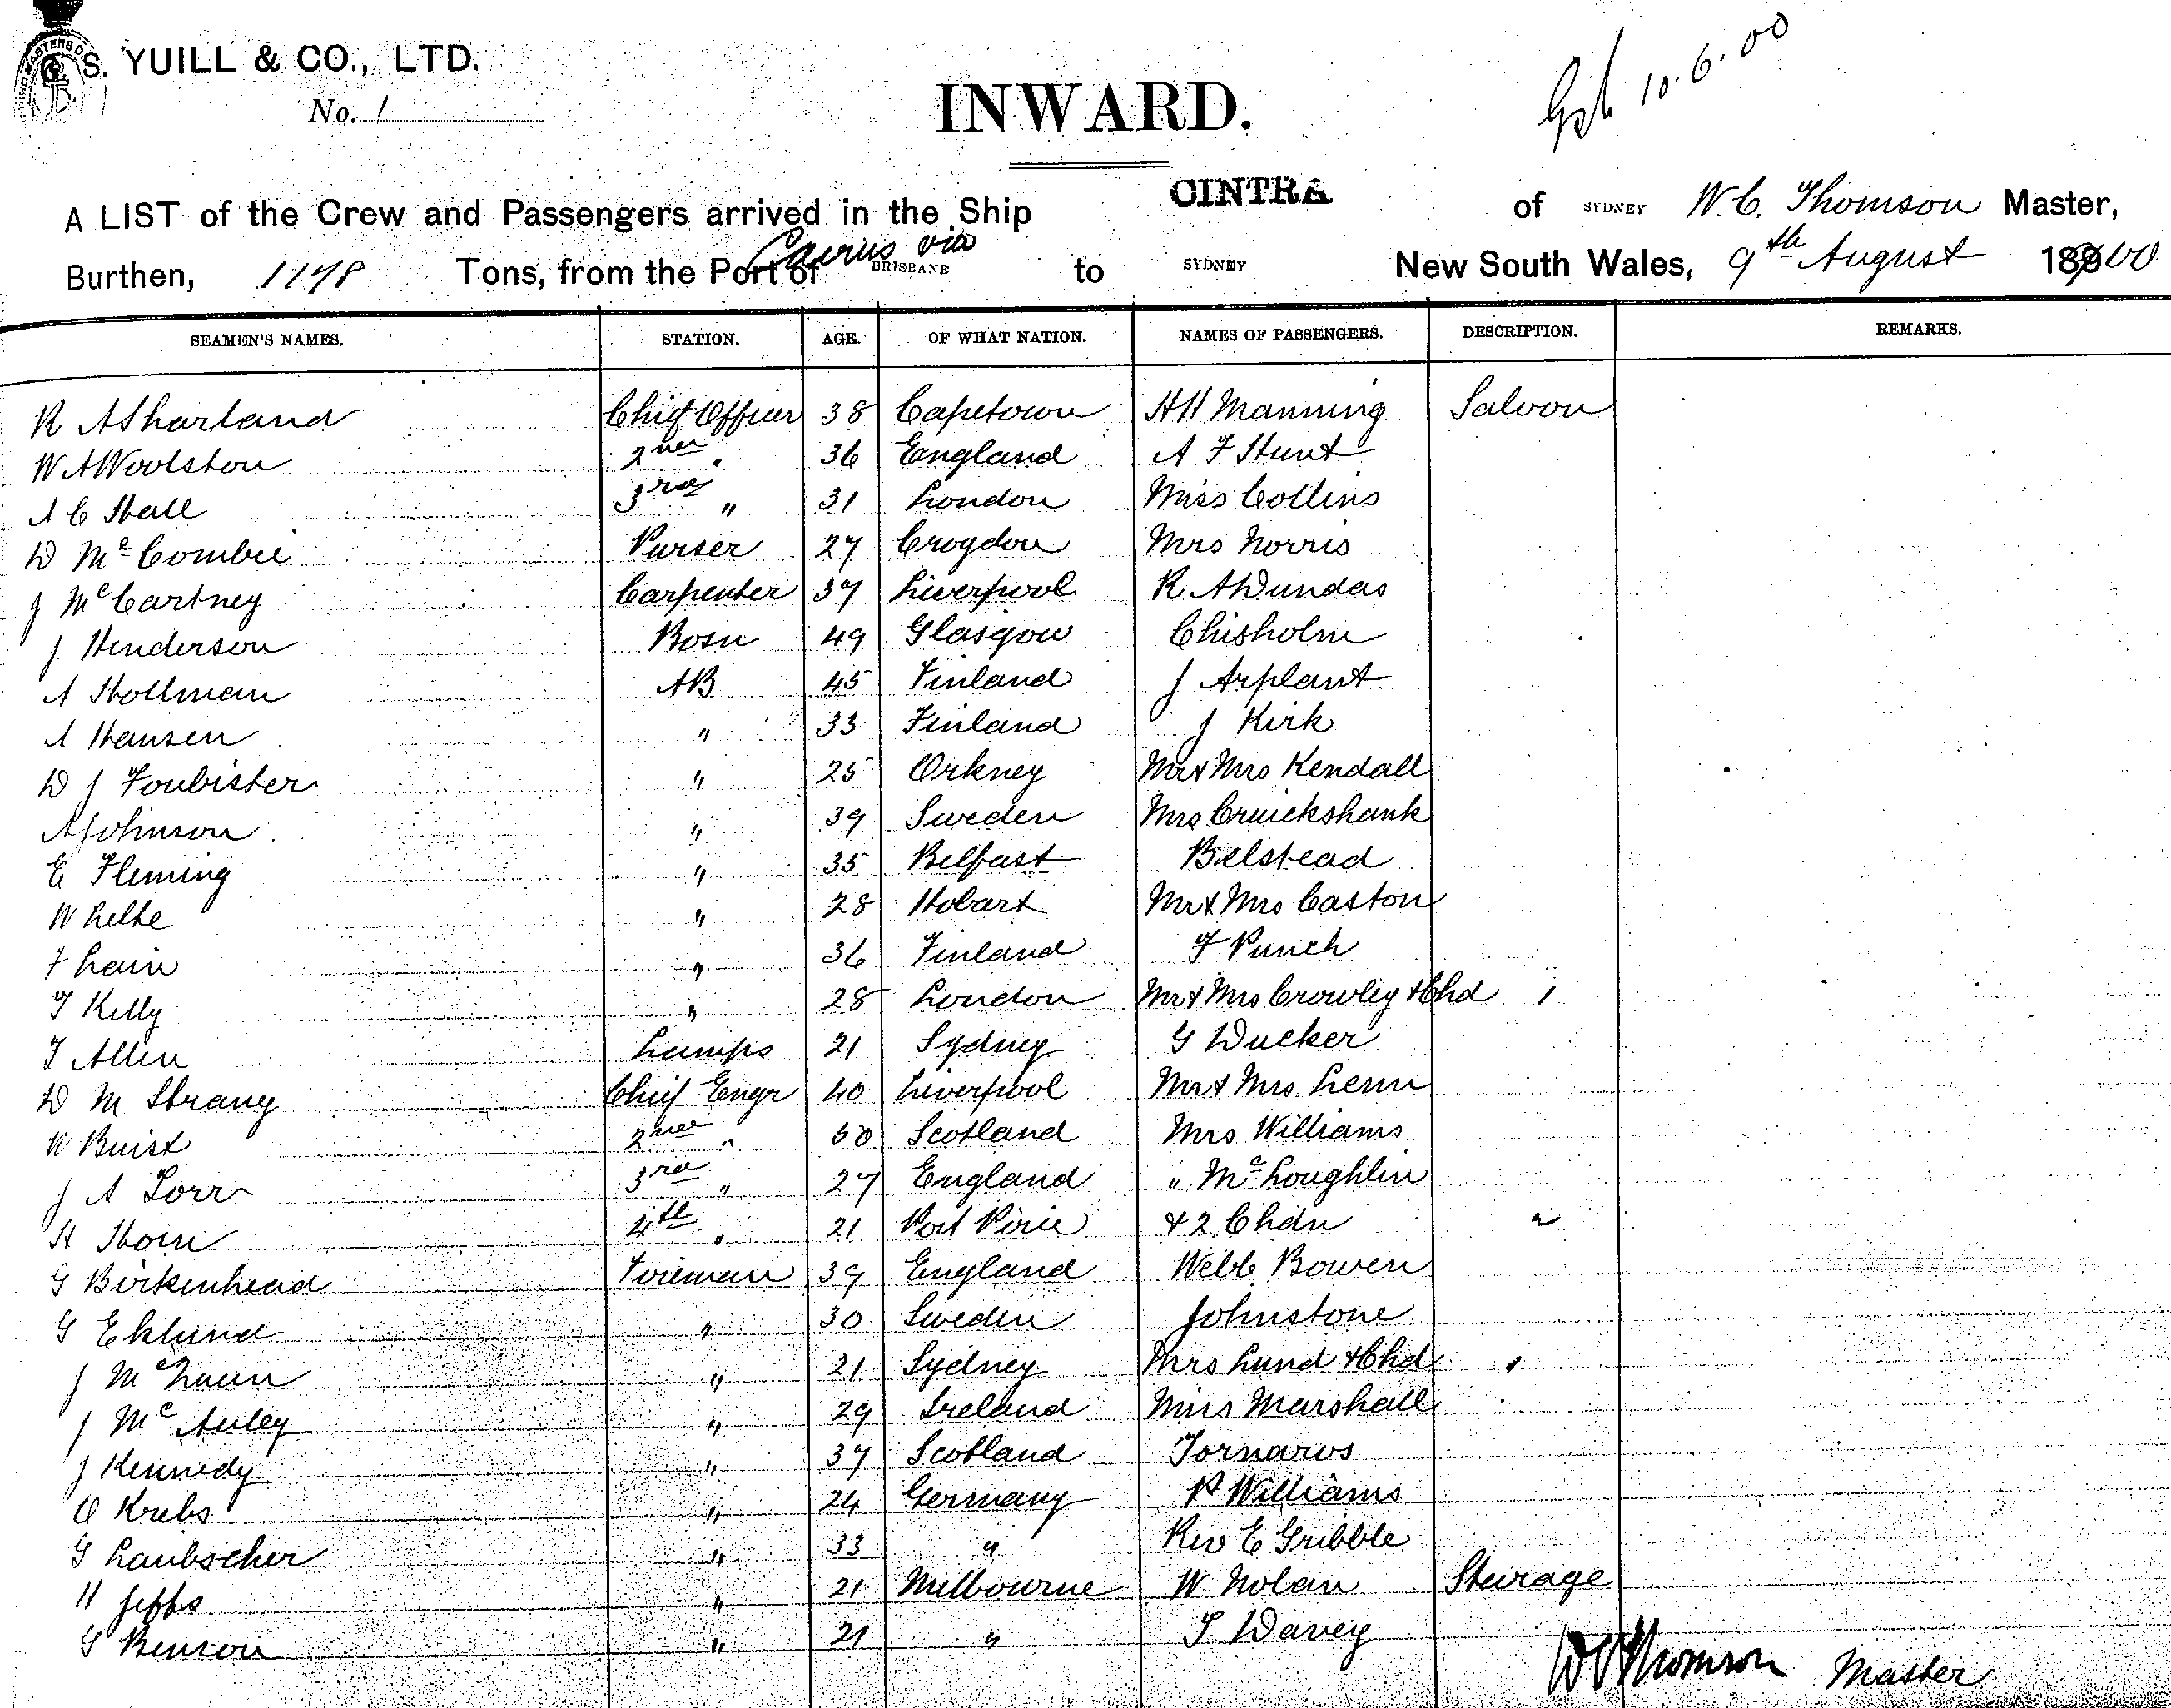 G. S. YUILL & CO., LTD.
No. 1
INWARD.
10.6.00
A LIST of the Crew and Passengers arrived in the Ship CINTRA of SYDNEY W. C. Thomson Master,
Burthen, 1178 Tons, from the Port of Cairns via BRISBANE to SYDNEY New South Wales, 9th August 1900
SEAMEN'S NAMES. STATION. AGE. OF WHAT NATION. NAMES OF PASSENGERS. DESCRIPTION. REMARKS.
R A Sharland Chief Officer 38 Capetown H H Manning Saloon
W A Woolston 2nd " 36 England A F Hunt
A C Hall 3rd " 31 London Miss Collins
D McCombie Purser 27 Croydon Mrs Norris
J McCartney Carpenter 37 Liverpool R A Dundas
J Henderson Bosn 49 Glasgow Chisholm
A Hollmein AB 45 Finland J Arplant
A Hansen " 33 Finland J Kirk
D J Foubister " 25 Orkney Mr & Mrs Kendall
A Johnson " 39 Sweden Mrs Cruickshank
E Fleming " 35 Belfast Belstead
W Lelhe " 28 Hobart Mr & Mrs Caston
F Lain " 36 Finland F Punch
T Kelly " 28 London Mr & Mrs Crowley & Chd 1
T Allen Lamps 21 Sydney G Ducker
D M Strang Chief Engr 40 Liverpool Mr & Mrs Lenn
W Buist 2nd " 50 Scotland Mrs Williams
J A Lorr 3rd " 27 England " McLoughlin
H Horn 4th " 21 Port Pirie & 2 Chdn 2
G Birkenhead Fireman 39 England Webb Bowen
G Eklund " 30 Sweden Johnstone
J McQueen " 21 Sydney Mrs Lund & Chd 1
J McAuley " 29 Ireland Miss Marshall
J Kennedy " 37 Scotland Tornaros
O Krebs " 24 Germany P Williams
G Laubscher " 33 " Rev E Gribble
H Jeffs " 21 Melbourne W Nolan Steerage
G Benson " 21 " T Davey
W C Thomson Master